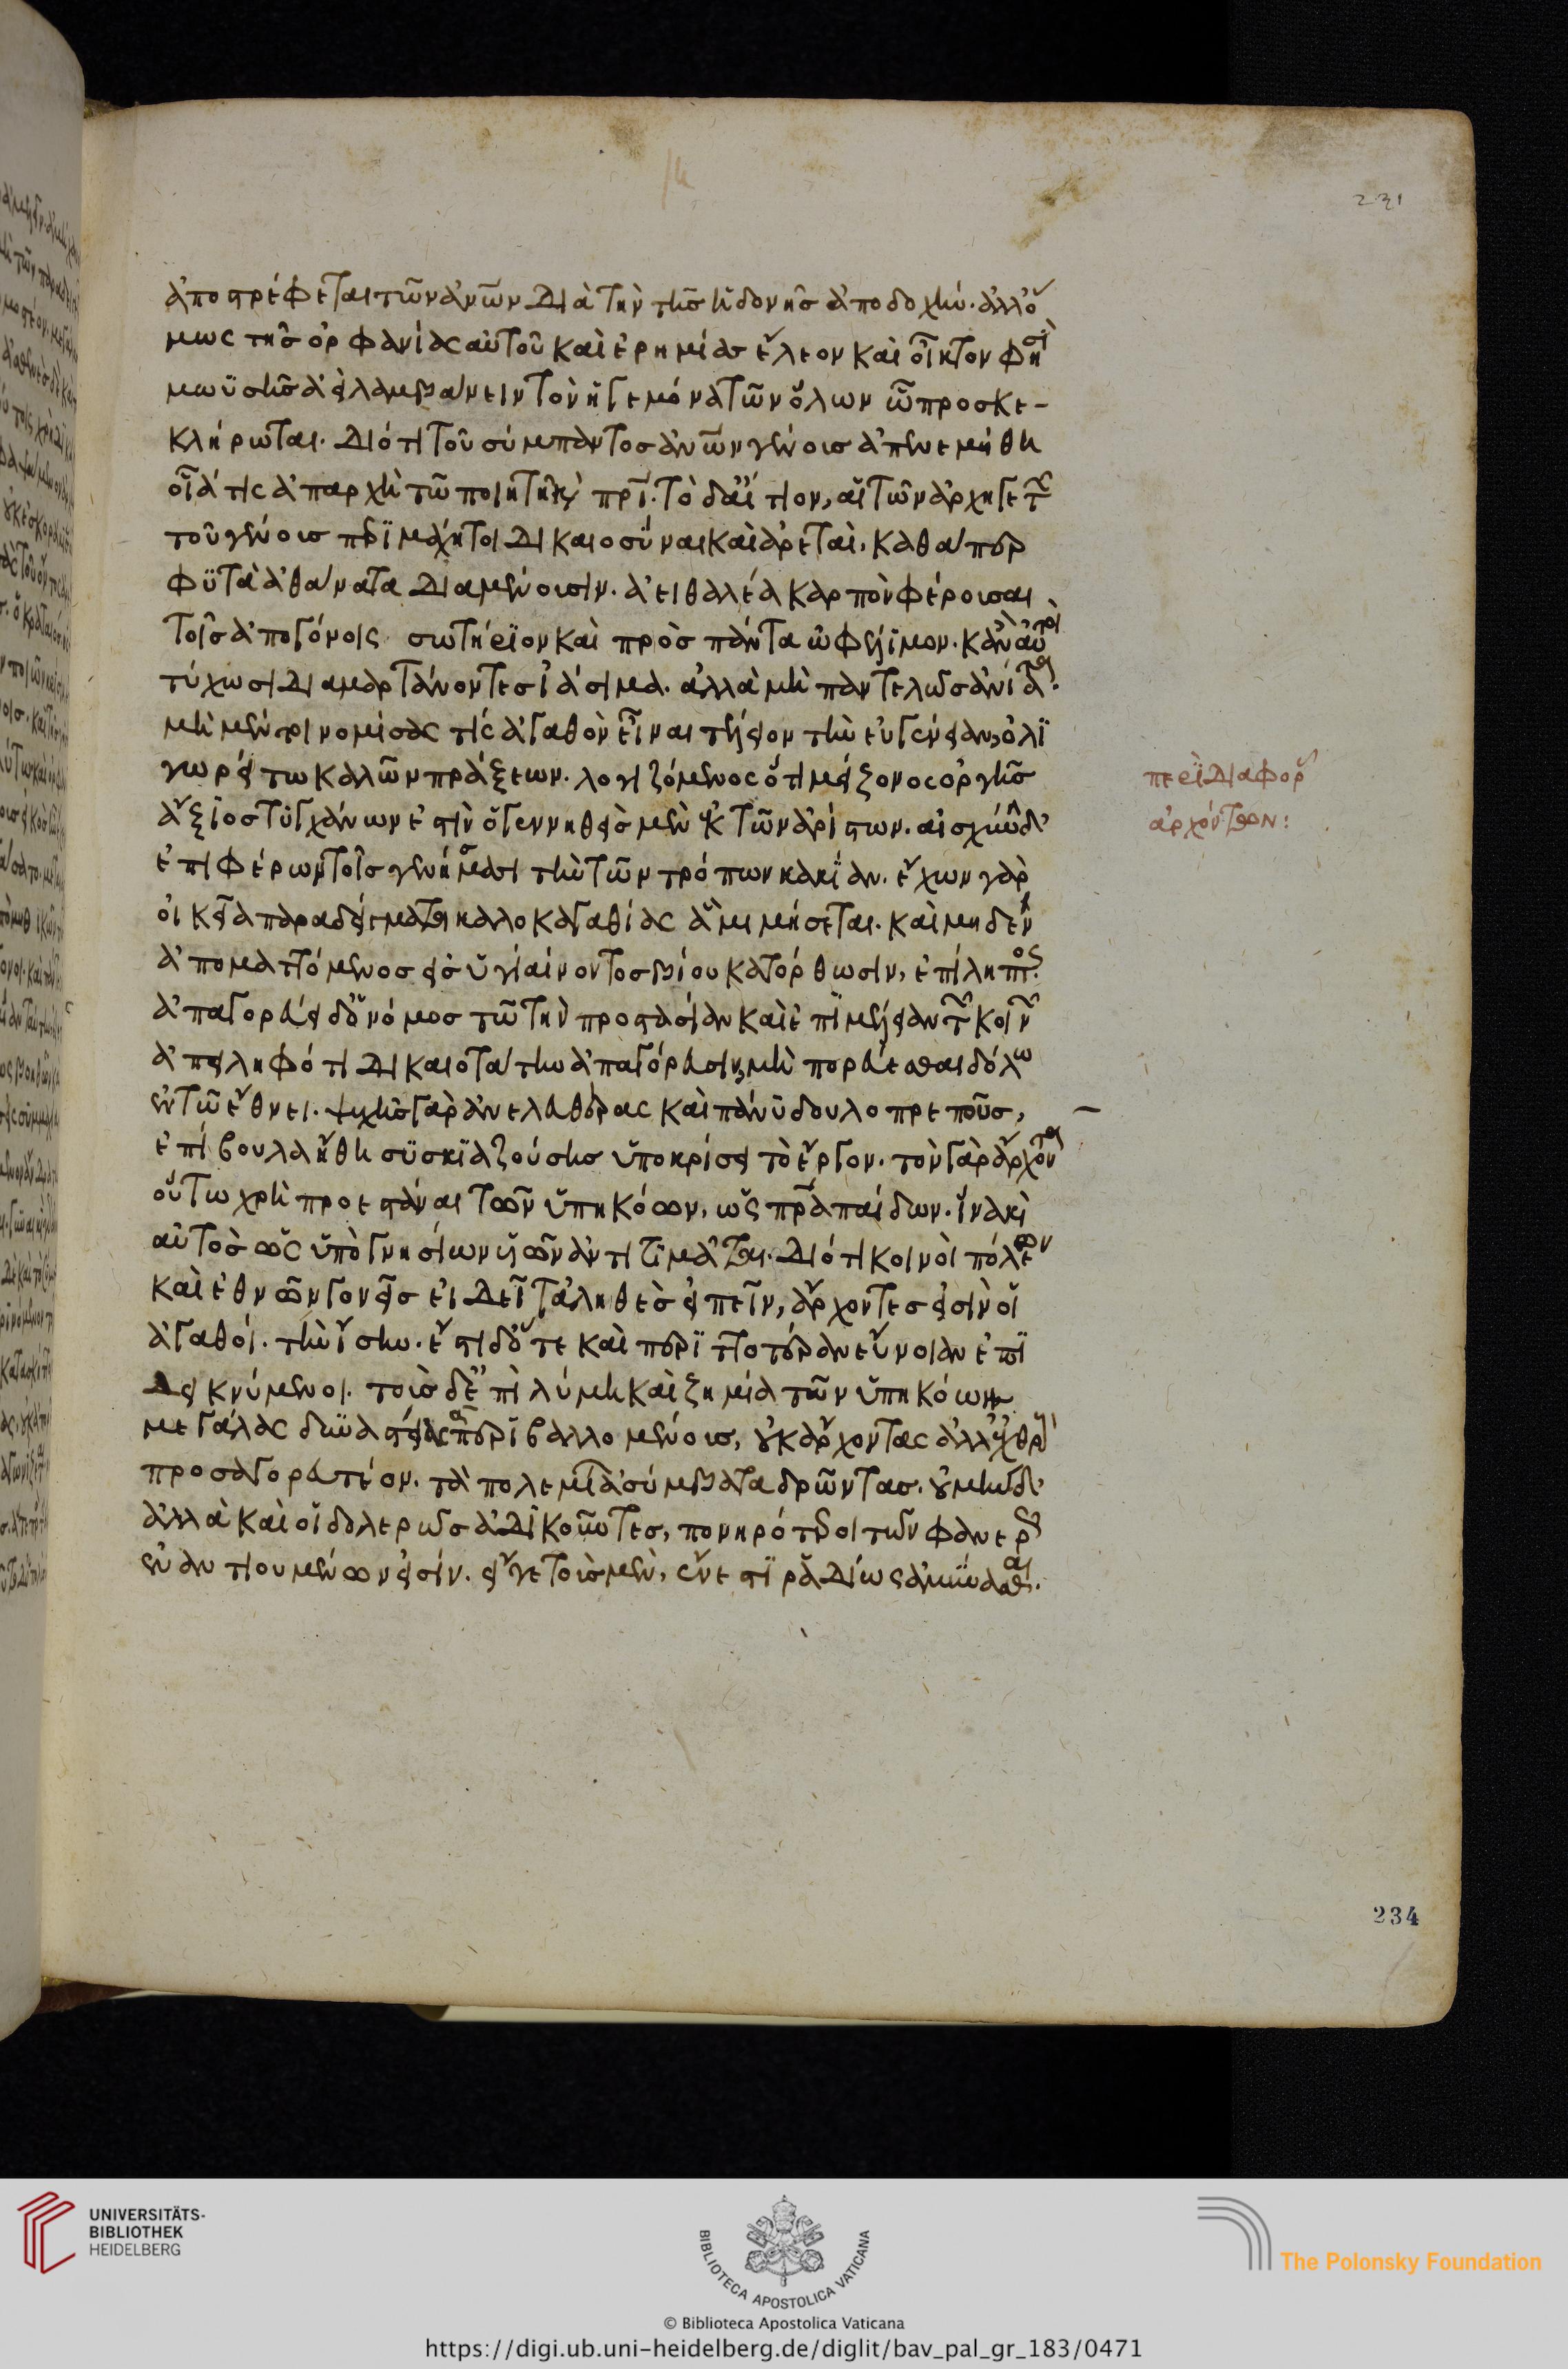 231
ἀποστρέφεται τῶν ἀνῶν διὰ τὴν τῆς ἡδονῆς ἀποδοχήν. ἀλλ' ὅ
μως τῆς ὀρφανίας αὐτοῦ καὶ ἐρημίας ἔλεον καὶ οἶκτον φησὶ
μωϋσῆς ἀεὶ λαμβάνειν τὸν ἡγεμόνα τῶν ὅλων ὧ προσκε-
κλήρωται. διότι τοῦ σύμπαντος ἀνῶν γένους ἀπενεμήθη
οἷά τις ἀπαρχὴ τῶ ποιητῆ καὶ πρὶ. τὸ δ' αἴτιον, αἱ τῶν ἀρχηγετῶν
τοῦ γένους περιμάχητοι δικαιοσύναι καὶ ἀρεταὶ, καθάπερ
φυτὰ ἀθάνατα διαμένουσιν. ἀειθαλέα καρπὸν φέρουσαι
τοῖς ἀπογόνοις σωτήριον καὶ πρὸς πάντα ὠφέλιμον. κἂν αὐτοὶ
τύχωσι διαμαρτάνοντες ἰάσιμα. ἀλλὰ μὴ παντελῶς ἀνίατα.
μὴ μέντοι νομίσας τίς ἀγαθὸν εἶναι τέλειον τὴν εὐγένειαν, ὀλι
γωρείτω καλῶν πράξεων. λογιζόμενος ὅτι μείζονος ὀργῆς
ἄξιος τυγχάνων ἐστὶν ὁ γεννηθεὶς μὲν ἐκ τῶν ἀρίστων. αἰσχύνην δ'
ἐπιφέρων τοῖς γεννήμασι τὴν τῶν τρόπων κακίαν. ἔχων γὰρ
οἰκεῖα παραδείγματα καλοκαγαθίας ἃ μιμήσεται. καὶ μηδὲν
ἀποματτόμενος εἰς ὑγιαίνοντος βίου κατόρθωσιν, ἐπίληπτος.
ἀπαγορεύει δ' ὁ νόμος τῶ τὴν προστασίαν καὶ ἐπιμέλειαν τῶν κοινῶν
ἀπειληφότι δικαιοτάτην ἀπαγόρευσιν, μὴ πορεύεσθαι δόλω
ἐν τῶ ἔθνει. ψυχῆς γὰρ ἀνελευθέρας καὶ πάνυ δουλοπρεποῦς,
ἐπίβουλα ἤθη συσκιαζούσης ὑποκρίσει τὸ ἔργον. τὸν γὰρ ἄρχοντα
οὕτω χρὴ προεστάναι τῶν ὑπηκόων, ὡς πρα παίδων. ἵνα καὶ
αὐτὸς ὡς ὑπὸ γνησίων υἱῶν ἀντιτιμᾶται. διότι κοινοὶ πόλεων
καὶ ἐθνῶν γονεῖς εἰ δεῖ τἀληθὲς εἰπεῖν, ἄρχοντες εἰσὶν οἱ
ἀγαθοί. τὴν ἴσην. ἔστι δ' ὅτε καὶ περιττοτέραν εὔνοιαν ἐπι
δεικνύμενοι. τοὺς δ' ἐπὶ λύμη καὶ ζημία τῶν ὑπηκόων
μεγάλας δυναστείας περιβαλλομένους, οὐκ ἄρχοντας ἀλλ' ἐχθροὺς
προσαγορευτέον. τὰ πολεμίων ἀσυμβάτων δρῶντας. οὐ μὴν δ'
ἀλλὰ καὶ οἱ δολερῶς ἀδικοῦντες, πονηρότεροι τῶν φανερῶς
ἐναντιουμένων εἰσίν. εἴγε τοὺς μὲν, ἔνεστι ῥαδίως ἀμύνασθαι.
περὶ διαφορᾶς
ἀρχόντων:
234
UNIVERSITÄTS-
BIBLIOTHEK
HEIDELBERG
BIBLIOTECA APOSTOLICA VATICANA
The Polonsky Foundation
© Biblioteca Apostolica Vaticana
https://digi.ub.uni-heidelberg.de/diglit/bav_pal_gr_183/0471